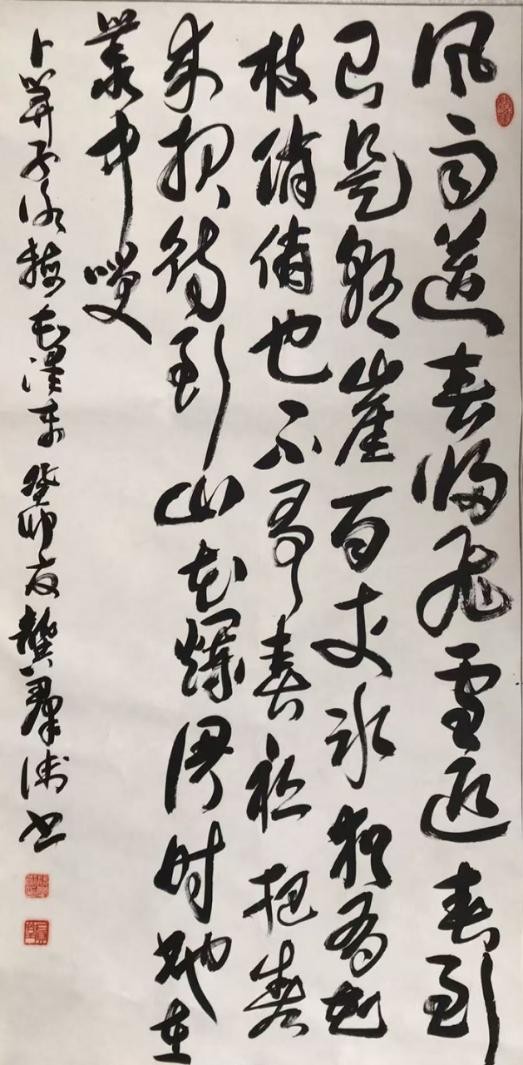 风雨送春归飞雪迎春到
已是悬崖百丈冰犹有花
枝俏俏也不争春只把春
来报待到山花爛漫时她在
叢中笑
卜算子咏梅毛泽东癸卯夏龔羣书